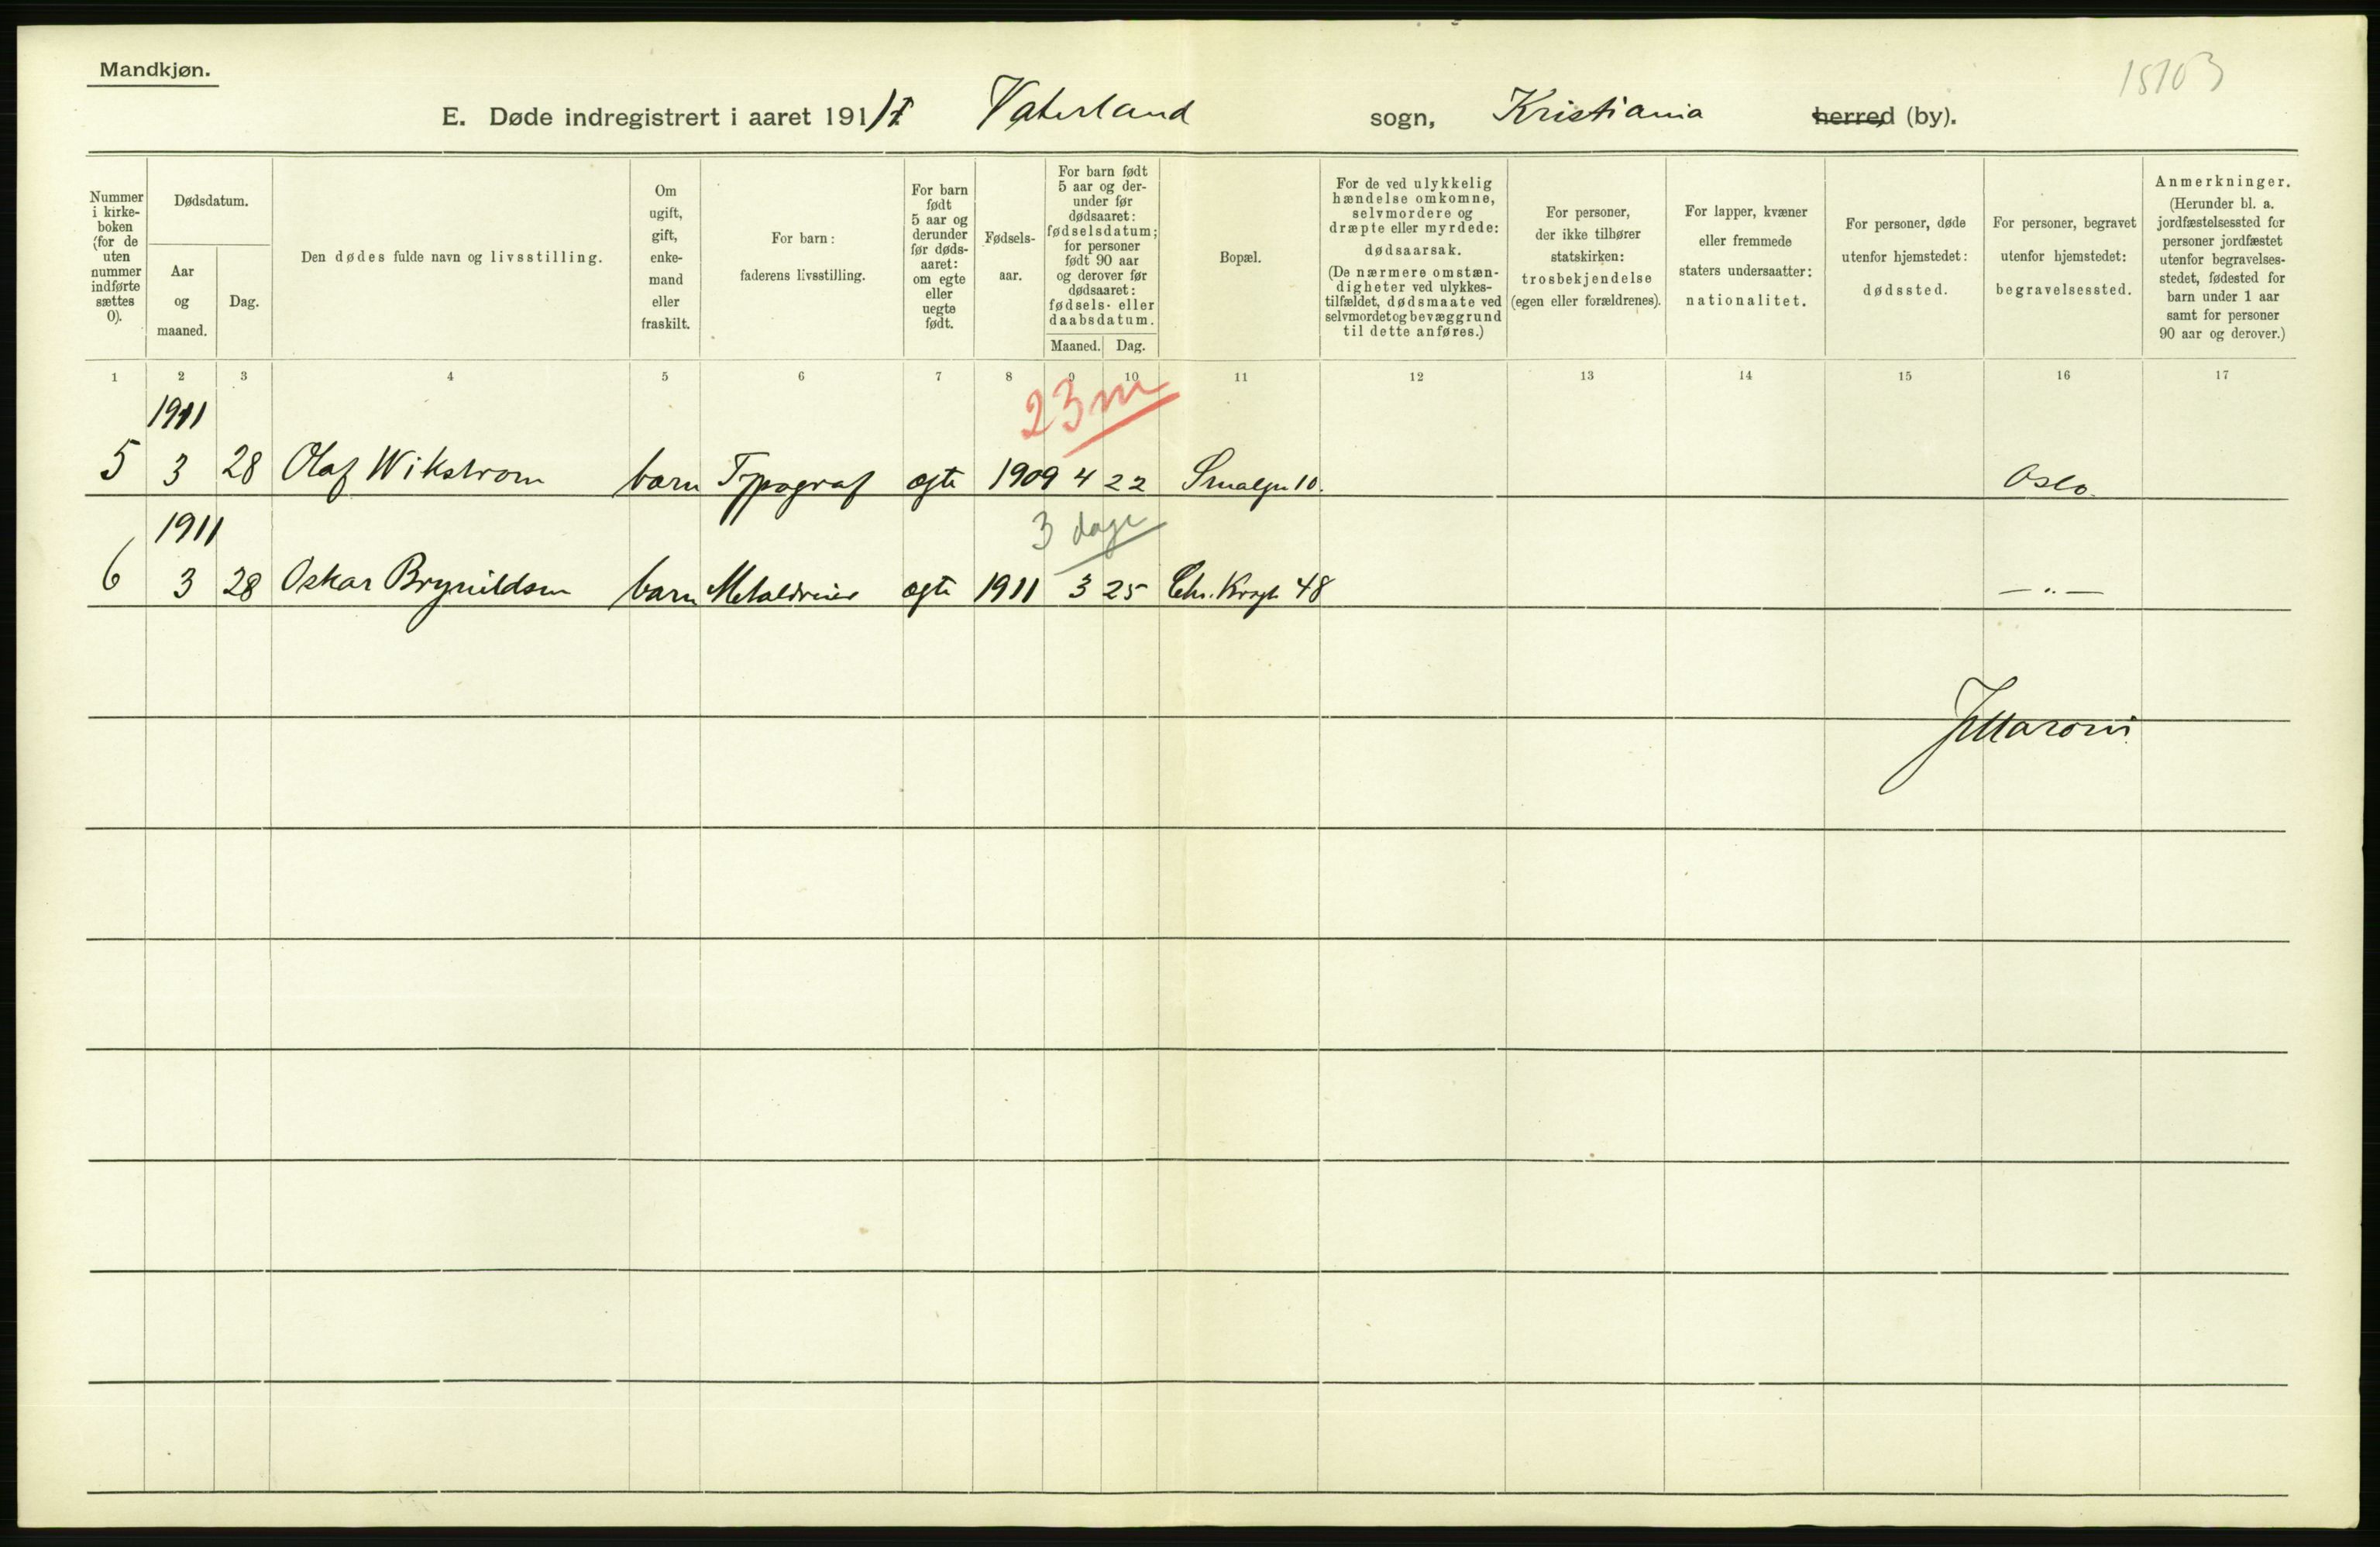 Mandkjøn.
15103
E. Døde indregistrert i aaret 1911 i Vaterland sogn, Kristiania herred (by).
Nummer i kirke-boken (for de uten nummer indførte sættes 0).
Dødsdatum.
Aar og maaned.
Dag.
Den dødes fulde navn og livsstilling.
Om ugift, gift, enke-mand eller fraskilt.
For barn: faderens livsstilling.
For barn født 5 aar og derunder før døds-aaret: om egte eller uegte født.
Fødsels-aar.
For barn født 5 aar og der-under før dødsaaret: fødselsdatum; for personer født 90 aar og derover før dødsaaret: fødsels- eller daabsdatum.
Maaned. Dag.
Bopæl.
For de ved ulykkelig hændelse omkomne, selvmordere og dræpte eller myrdede: dødsaarsak. (De nærmere omstæn-digheter ved ulykkes-tilfældet, dødsmaate ved selvmordet og bevæggrund til dette anføres.)
For personer, der ikke tilhører statskirken: trosbekjendelse (egen eller forældrenes).
For lapper, kvæner eller fremmede staters undersaatter: nationalitet.
For personer, døde utenfor hjemstedet: dødssted.
For personer, begravet utenfor hjemstedet: begravelsessted.
Anmerkninger. (Herunder bl. a. jordfæstelsessted for personer jordfæstet utenfor begravelses-stedet, fødested for barn under 1 aar samt for personer 90 aar og derover.)
1 2 3 4 5 6 7 8 9 10 11 12 13 14 15 16 17
1911
23 m
5 3 28 Olaf Wikstrom barn Typograf egte 1909 4 22 Smalgn 10. Oslo.
1911
3 dage
6 3 28 Oskar Brynildsen barn Metaldreier egte 1911 3 25 Chr. Krogh 48 — „ —